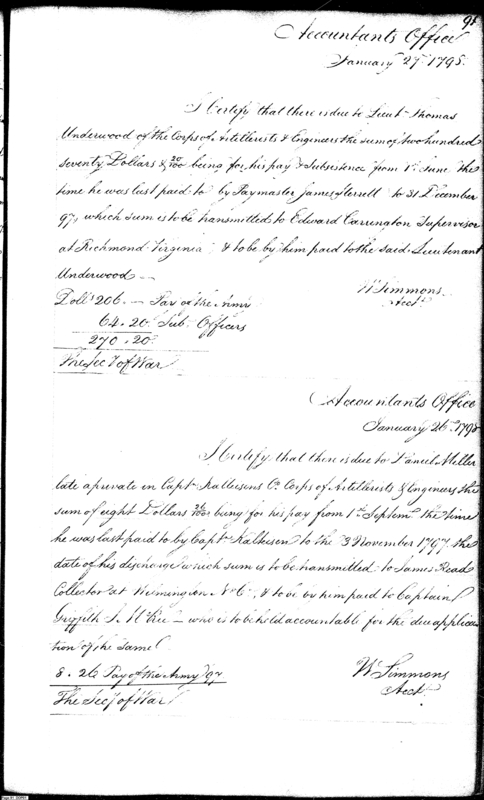 Accountants Office
January 27. 1798.
I Certify that there is due to Lieut. Thomas
Underwood of the Corps of Artillerists & Engineers the sum of two hundred
seventy Dollars & 20/100 being for his pay & Subsistence from 1st June the
time he was last paid to by Paymaster James Sterrett to 31 December
97, which sum is to be transmitted to Edward Carrington Supervisor
at Richmond Virginia & to be by him paid to the said Lieutenant
Underwood —
Wm Simmons
Acct.
Dolls 206. — Pay of the Army
64.20 Sub. Officers
270.20.
The Secy of War
Accountants Office
January 26. 1798
I Certify, that there is due to Daniel Miller
late a private in Capt. Co. Corps of Artillerists & Engineers the
sum of eight Dollars 26/100 being for his pay from 1st Septemr. the time
he was last paid to by Capt. to the 3 November 1797 the
date of his discharge which sum is to be transmitted to James Read
Collector at Wilmington N.C. & to be by him paid to Captain
Griffith J. McRee — who is to be held accountable for the due applica
tion of the same
W Simmons
Acct.
8.26 Pay of the Army 97
The Secy of War